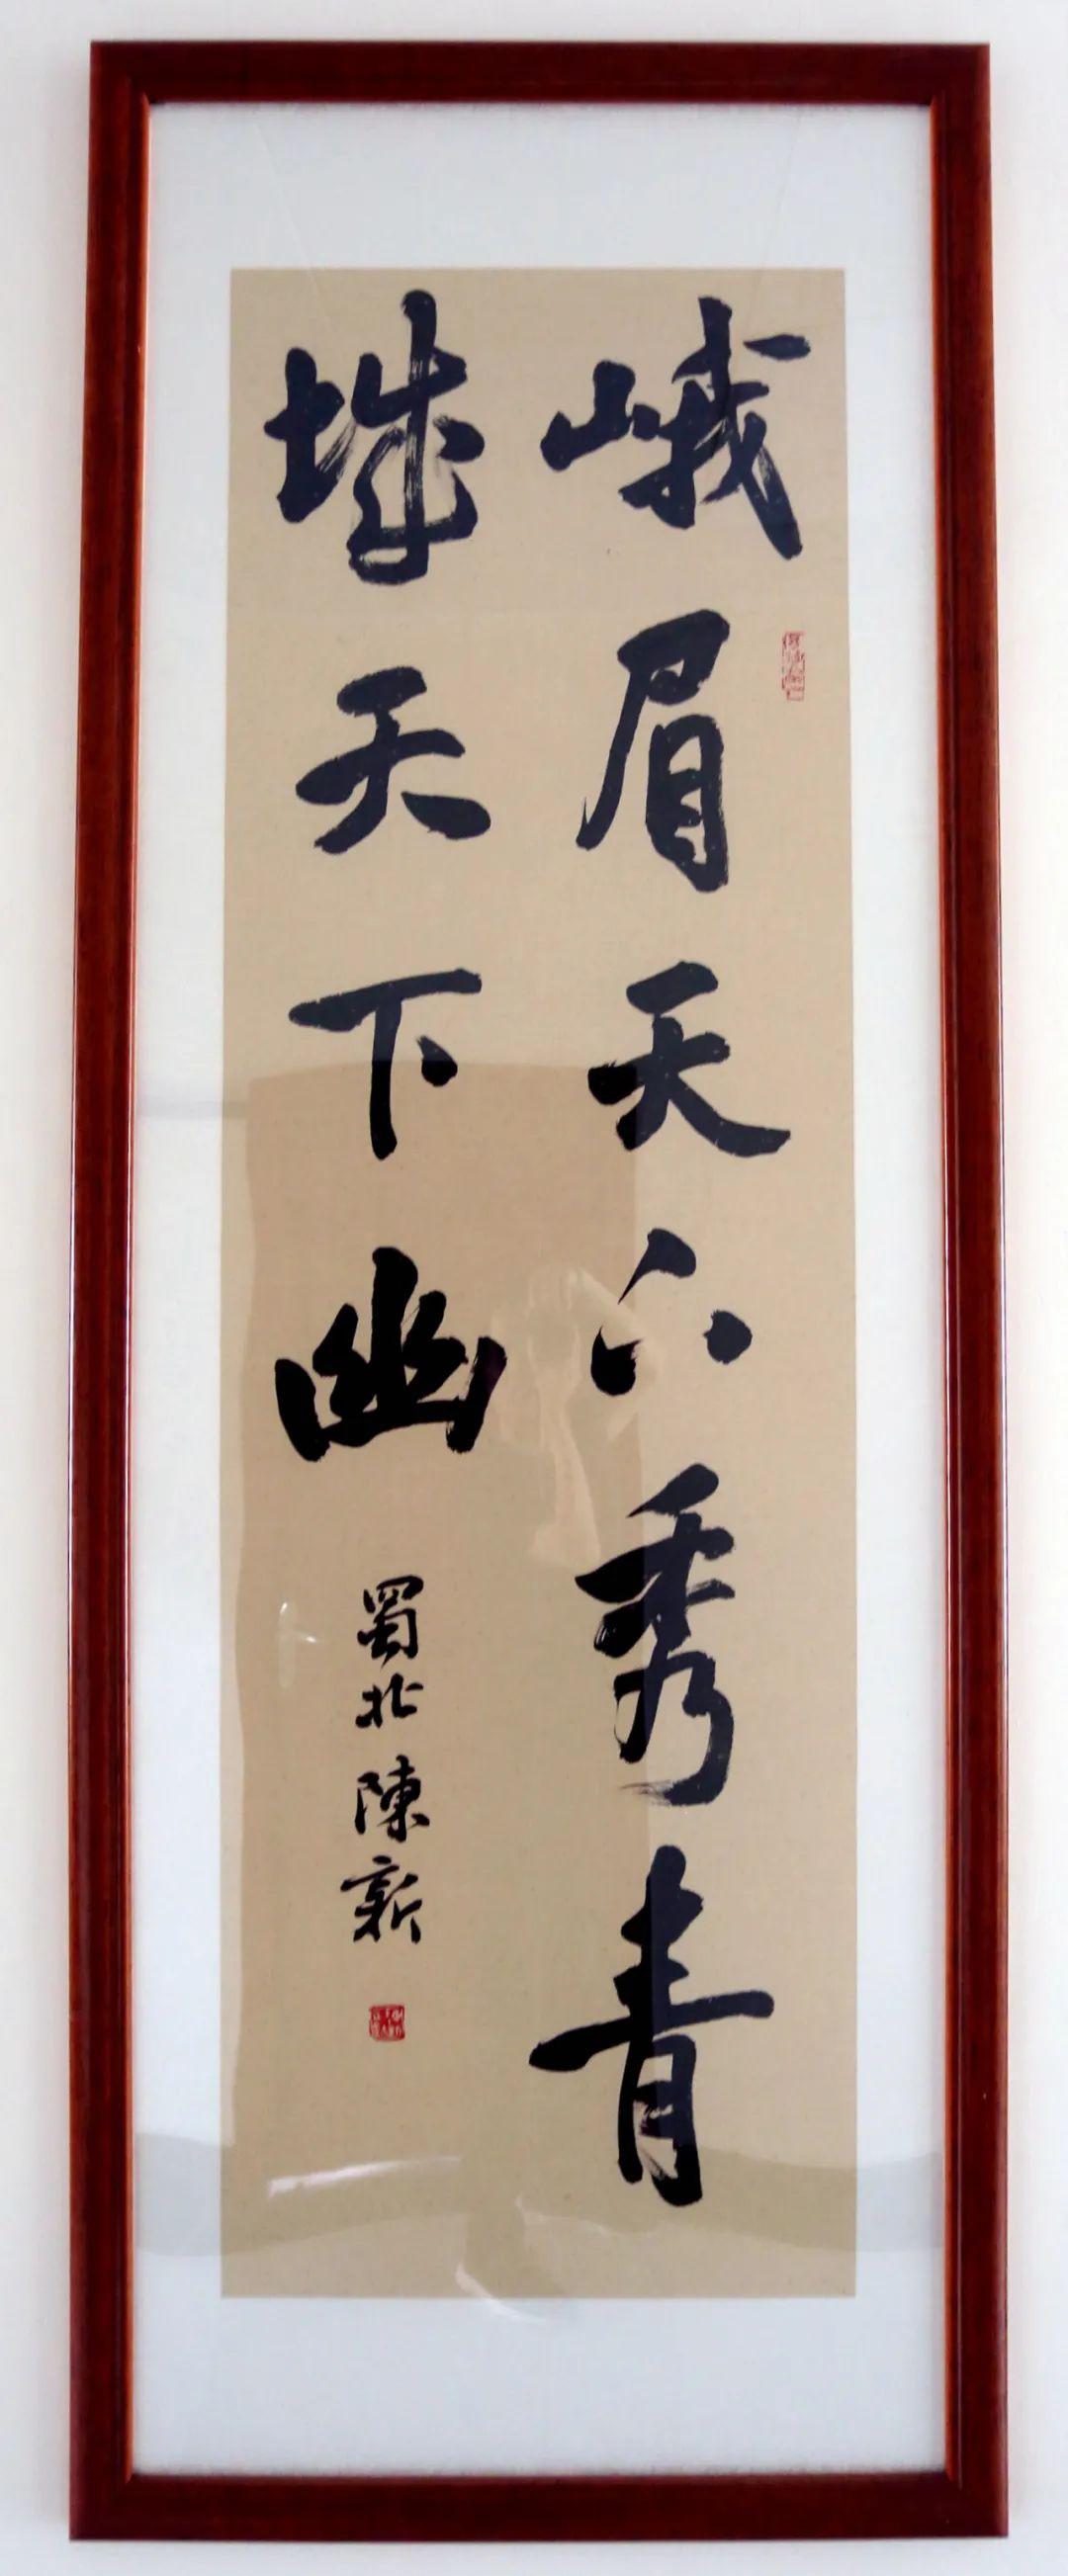 峨眉天下秀青
城天下幽
蜀北陳新